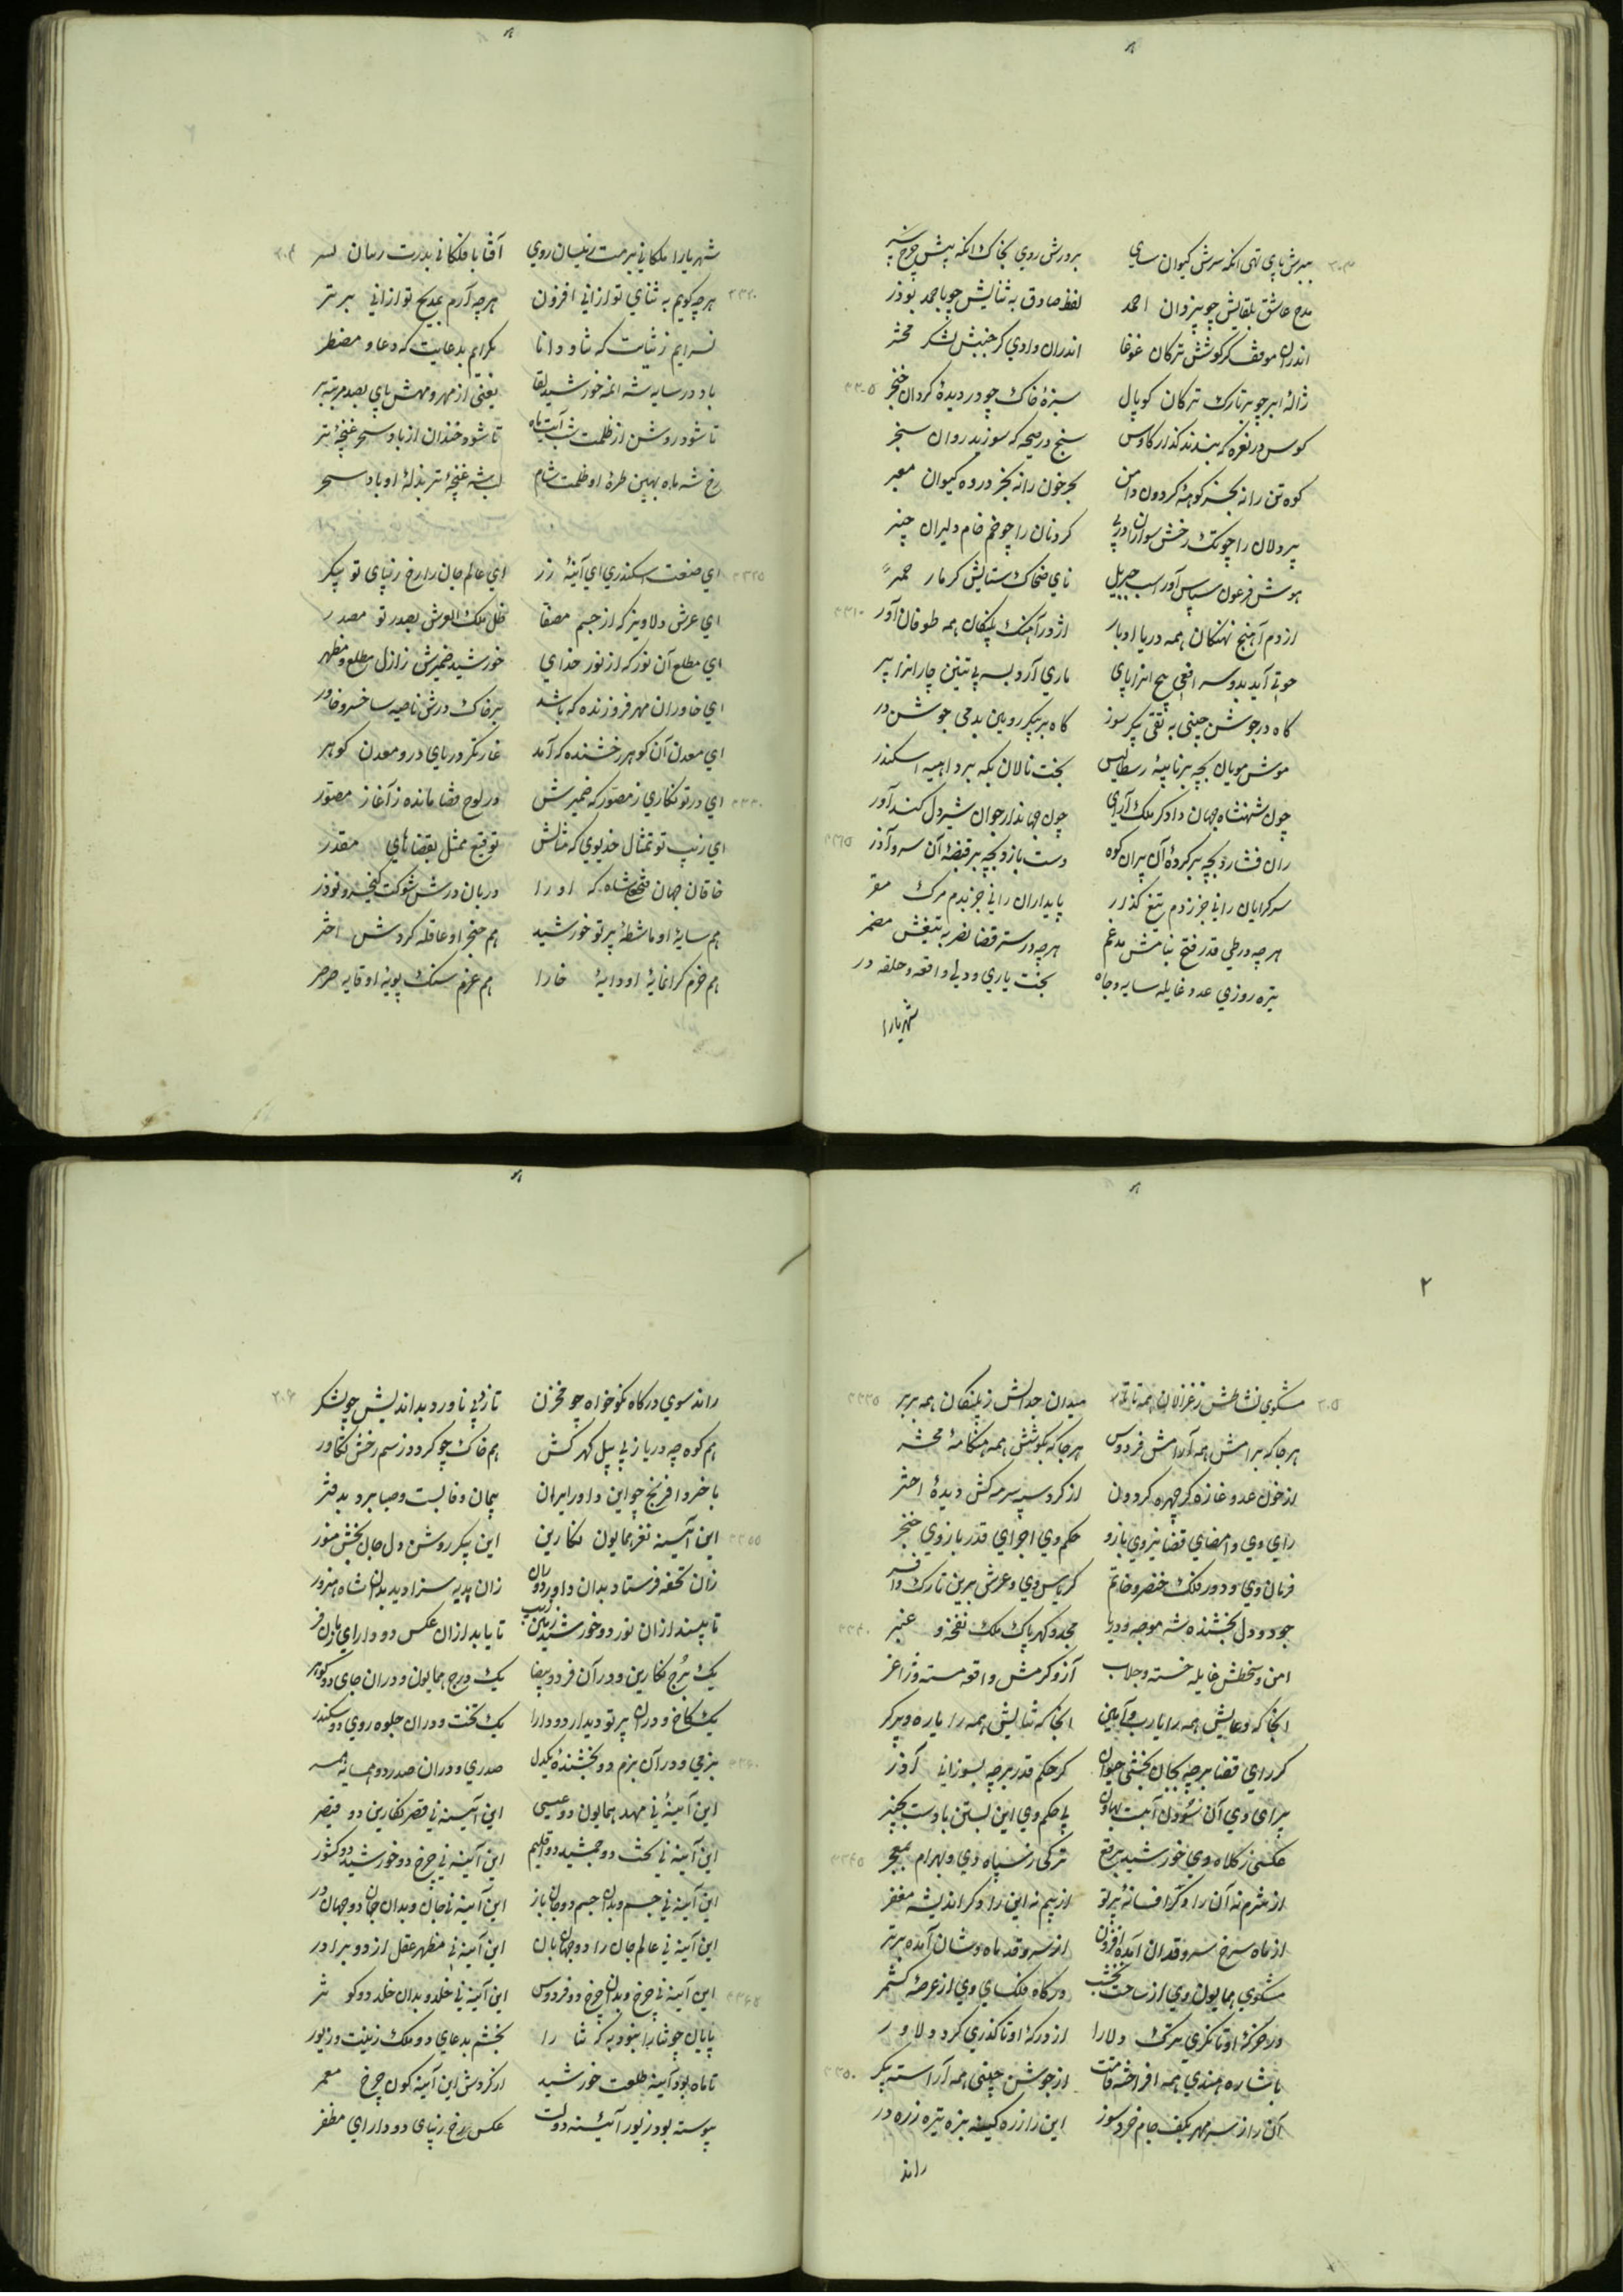 بدرش پای نهی آنکه سرش کیوان سای    بر درش روی بخاک آنکه به پیش چرخ سپر
مدح عاشق بلقایش چو بیزدان احمد    لفظ صادق به ثنایش چو باحمد بوذر
اندران موقف کز کوشش ترکان غوغا    اندران وادی کز جنبش لشکر محشر
ژاله ابر چو بر تارک ترکان کوپال    سبزه خاک چو در دیده کردان خنجر
کوس در نعره که بندند گذار کاوس    سنج در صیحه که سوزید روان سنجر
کوه تن را نه بجز کوهه کردون دامن    بحر خون را نه بجز دروه کیوان معبر
پردلان را چو تک رخش سواران در پی    کردنان را چو خم خام دلیران چنبر
هوش فرعون سپاس آور اسب جبریل    نای ضحاک ستایش کر مار حمیر
از دم آهنج نهنکان همه دریا اوبار    اژدر آهنک پلنکان همه طوفان آور
چون شهنشاه جهان دادکر ملک آرای    چون جهاندار جوان شیردل کندآور
سرکرایان را نی جز زدم تیغ گذار    پایداران را نی جز بدم مرک مقر
هرچه در طی قدر فتح بنامش مدغم    هرچه در ستر قضا نصر به تیغش مضمر
تیره روزی عدو غایله سایه و جاه    بخت یاری و ولی واقعه و حلقه در
شهریارا
شهریارا ملکانی بر مت زینسان روی    آفتابا فلکانی بدرت زینسان سر
هرچه کویم به ثنای تو ازانی افزون    هرچه آرم بمدیح تو ازانی برتر
نسرایم ز ثنایت که ثنا و دانا    بکرایم بدعایت که دعا و مضطر
باد در سایه شه ائمه خورشید لقا    یعنی از مهر و مهش پای بصد مرتبه بر
تا شود روشن از ظلمت شب آیت ماه    تا شود خندان از باد سحر غنچه تر
رخ شه ماه بهین طره او ظلمت شام    لب شه غنچه تر بذله او باد سحر
ای صنعت اسکندری ای آینه زر    ای عالم جان را رخ زیبای تو پیکر
ای عرش دلاویز که از جسم مصفا    ظل ملک العرش بصدر تو مصدر
ای مطلع آن نور که از نور خدای    خورشید ضمیرش ز ازل مطلع و مظهر
ای خاوران مهر فروزنده که باشد    بر خاک درش ناصیه سا خسرو خاور
ای معدن آن کوهر رخشنده که آمد    غارتکر دریای در و معدن کوهر
ای در تو نکاری ز مصور که ضمیرش    در لوح قضا مانده ز آغاز مصور
ای زیب تو تمثال خدیوی که مثالش    توقیع ممثل بقضاهای مقدر
خاقان جهان فتحعلی شاه که او را    دربان درش شوکت کیخسرو نوذر
هم سایه او ماشطه پرتو خورشید    هم خنجر او عاقله کردش اختر
هم حزم کرانمایه او دایه خارا    هم عزم سبک پویه او قایه صرصر
مشکوی نشاطش ز غزالان همه تاتار    میدان جدالش ز پلنکان همه بربر
هر جا که برامش همه آرامش فردوس    هر جا که بکوشش همه هنکامه محشر
از خون عدو غازه کر چهره کردون    از کرد سپه سرمه کش دیده اختر
رای وی و امضای قضا نیروی بازو    حکم وی و اجرای قدر بازوی خنجر
فرمان وی و دور فلک خنصر و خاتم    کریاس وی و عرش برین تارک و افسر
جود و دل بخشنده شه موجه و دریا    مجد و کهر پاک ملک نفخه و عنبر
انجا که دعایش همه را یارب و آمین    انجا که ثنایش همه را یاره و پرکر
کر رای قضا هرچه بجان بخشی حیوان    کر حکم قدر هرچه بسوزانی آذر
عکسی ز کلاه وی خورشید ببرقع    ترکی ز سپاه وی و بهرام بمعجر
از شرم نه آن را و کر افسانه پرتو    از بیم نه این را و کر اندیشه مغفر
از ماه سرخ سروقدان آمده افزون    از سرو قد ماه وشان آمده برتر
مشکوی همایون وی از ساحت نخشب    درکاه فلک سای وی از عرصه کشمر
در خرکه او تا نکری ترک دلارا    از درکه او تا گذری کرد دلاور
باشاره هندی همه افراخته قامت    از جوشن چینی همه آراسته پیکر
آن را ز سر مهر بکف جام خردسوز    این را زره کینه بزه تیره زره در
راند
راند سوی درکاه نکوخواه چو مخزن    تازد پی ناورد بداندیش چو لشکر
هم کوه چه دریا ز پی پیل کهرکش    هم خاک چو کردون ز سم رخش تکاور
با خسرو افرنج چو این داور ایران    پیمان وفا بست و صبا برد بدفتر
این آینه نغز همایون نکارین    این پیکر روشن دل جان بخش منور
زان تحفه فرستاد بدان داور دوران    زان هدیه سزا دید بدان شاه هنرور
تا بیند ازان نور دو خورشید زمین زیب    تا یابد ازان عکس دو دارای زمان فر
یک برج نکارین و دران فر دو بیضا    یک درج همایون و دران جای دو کوهر
یک کاخ و دران پرتو دیدار دو دارا    یک تخت و دران جلوه روی دو سکندر
بزمی و دران بزم دو بخشنده یکدل    صدری و دران صدر دو همسایه همسر
این آینه نی مهد همایون دو عیسی    این آینه نی قصر نکارین دو قیصر
این آینه نی تخت دو جمشید دو اقلیم    این آینه نی چرخ دو خورشید دو کشور
این آینه نی جسم و بدان جسم دو جان باز    این آینه نی جان و بدان جان دو جهان در
این آینه نی عالم جان را دو جهان بان    این آینه نی مظهر عقل از دو برادر
این آینه نی چرخ و بدان چرخ دو فردوس    این آینه نی خلد و بدان خلد دو کوثر
پایان چو ثنا را نبود به که ثنا را    بخشم بدعای دو ملک زینت و زیور
تا ماه بود آینه طلعت خورشید    از کردش این آینه کون چرخ معمر
پیوسته بود زیور آئینه دولت    عکس رخ زیبای دو دارای مظفر